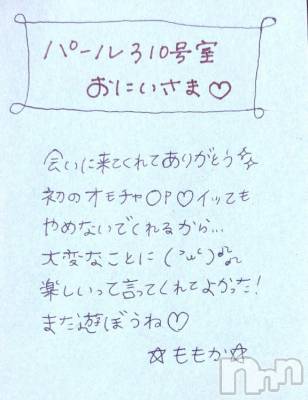 パール310号室
おにいさま♡
会いに来てくれてありがとう☆彡
初のオモチャOP♡イッても
やめないでくれるから…
大変なことに(っ'ω'c)
楽しいって言ってくれてよかった!
また遊ぼうね♡
☆ももか☆